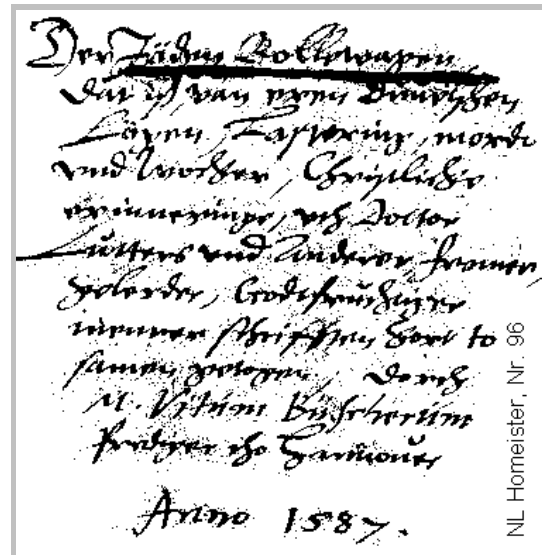 Der Jöden Rollewagen
Dat is, van eren Düvelschen
Lögen, Lasteringe, mordt
und Wocher, Christliche
erinneringe, uth Doctor
Lutters und Anderer framer,
gelerder, Godtfruchtiger
menner schrifften kort to
samen getagen, Dorch
M. Vitum Büscherum
Prediger tho Hannover
Anno 1587.
NL Homeister, Nr. 96